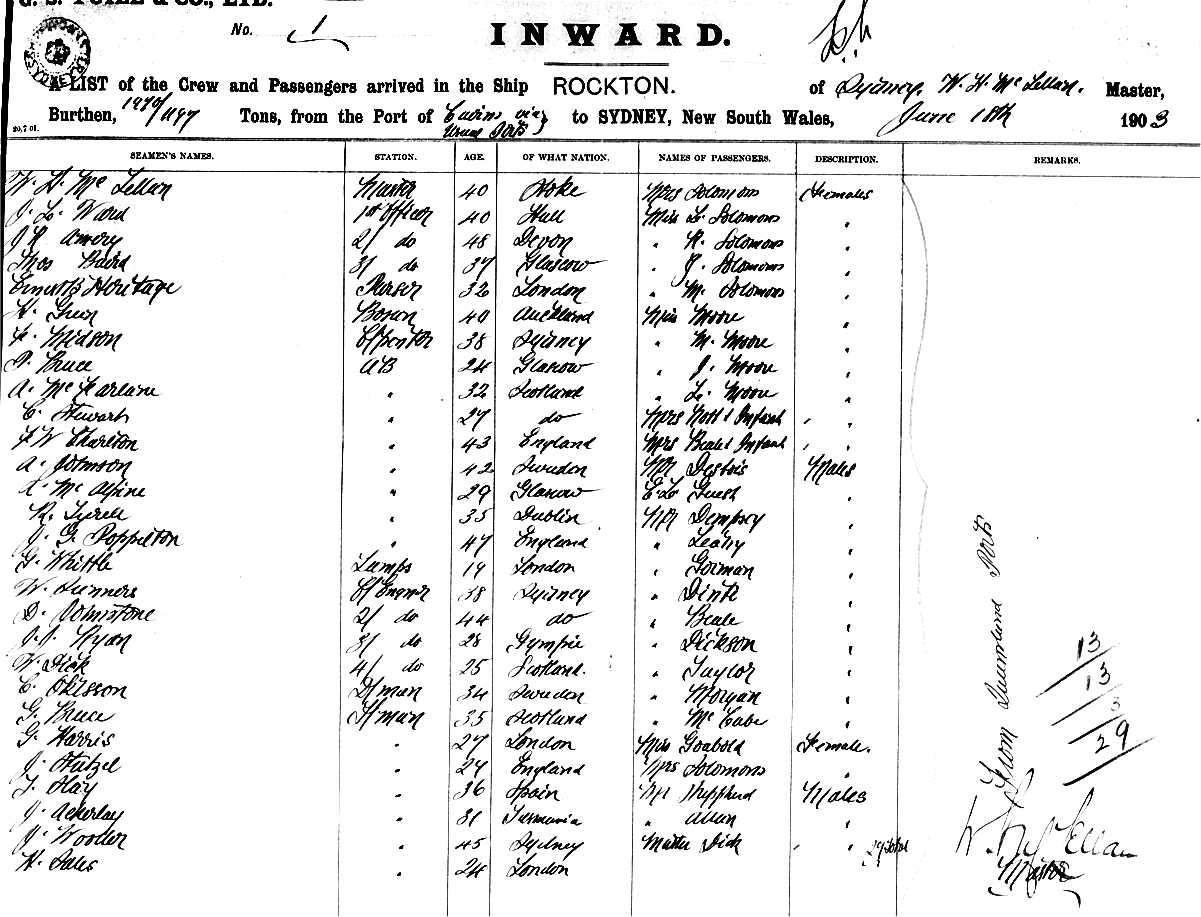 G. S. YUILL & CO., LTD.
No. 1
INWARD.
A LIST of the Crew and Passengers arrived in the Ship ROCKTON. of Sydney, W. H. McLellan. Master,
Burthen, 1970/1197 Tons, from the Port of Cairns via Usual Ports to SYDNEY, New South Wales, June 18th 1903
20,7 01.
SEAMEN'S NAMES. STATION. AGE. OF WHAT NATION. NAMES OF PASSENGERS. DESCRIPTION. REMARKS.
W. H. McLellan Master 40 Stoke Mrs Solomons Females
J. L. Ward 1st Officer 40 Hull Miss L. Solomons "
J R Amery 2/ do 48 Devon " R. Solomons "
Thos Baird 3/ do 37 Glascow " J. Solomons "
Ernest Heritage Purser 32 London " M. Solomons "
H. Green Bosun 40 Auckland Miss Moore "
Midson C/penter 38 Sydney " M. Moore "
Bruce AB 24 Glasgow " J. Moore "
A. McFarlane " 32 Scotland " L. Moore "
C. Stewart " 27 do Mrs Nott & Infant " "
F W Charlton " 43 England Mrs Beale & Infant " "
A. Johnson " 42 Sweden Mr Desbois Males
A. McAlpine " 29 Glasgow E. L. Guest "
R. Tyrell " 35 Dublin Mr Dempsey "
J. G. Poppelton " 47 England " Leahy "
G. Whittle Lamps 19 London " Gorman "
W. Sunners C/Engneer 38 Sydney " "
D. Johnstone 2/ do 44 do " Beale "
J. J. Ryan 3/ do 28 Gympie " Dickson "
W. Dick 4/ do 25 Scotland. " Taylor "
C. Okesson D/man 34 Sweden " Morgan "
G. Bruce F/man 35 Scotland " McCabe "
G. Harris " 27 London Miss Goabold Female.
J. Hutzel " 27 England Mrs Solomons "
36 Spain Mr Sheppherd Males
J. Ackerley " 31 Tasmania " Allan "
J. Wooller " 45 Sydney Master Dick " " 29 total
H. Sales " 24 London
From Queensland Ports
13
13
3
29
W. H. McLellan
Master